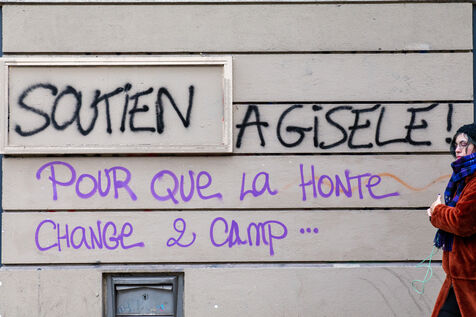 SOUTIEN A GISELE !
POUR QUE LA HONTE
CHANGE 2 CAMP ...